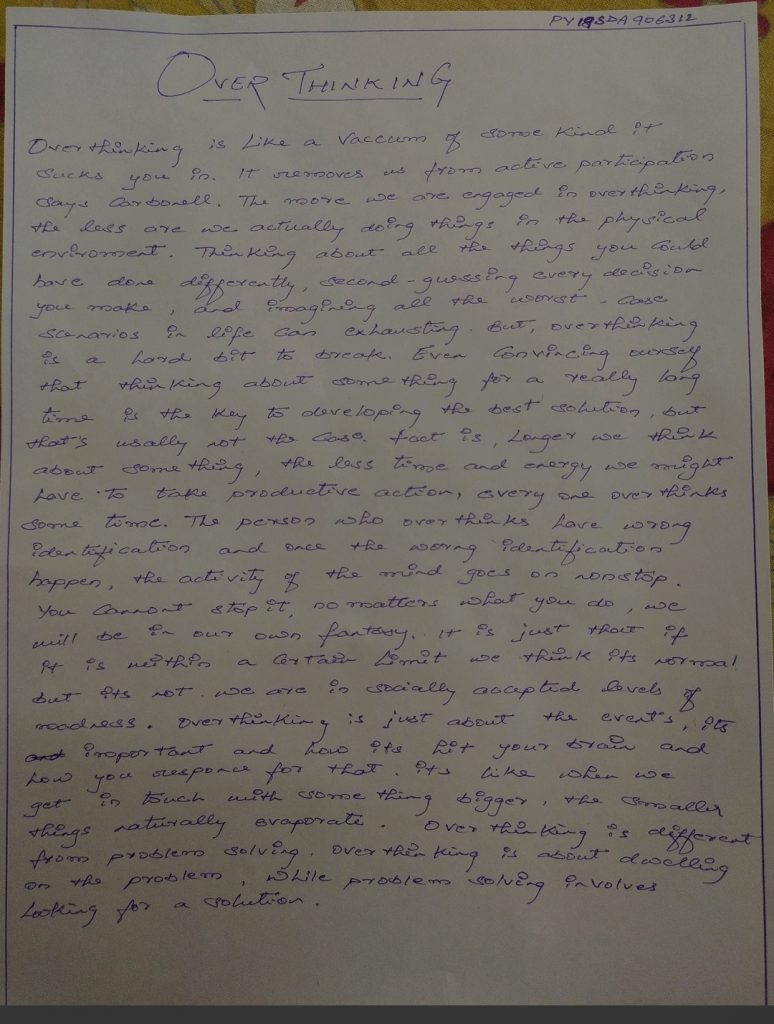 PY19SDA906312
OVER THINKING
Overthinking is Like a Vaccum of some kind it
Sucks you in. It removes us from active participation
Says Carbonell. The more we are engaged in overthinking,
the less are we actually doing things in the physical
enviroment. Thinking about all the things you could
have done differently, second-guessing every decision
you make, and imagining all the worst-case
scenarios in life can exhausting. But, overthinking
is a hard bit to break. Even convincing ourself
that thinking about something for a really long
time is the key to developing the best solution, but
that's usally not the case. fact is, Longer we think
about something, the less time and energy we might
have to take productive action, every one overthinks
some time. The person who overthinks have wrong
identification and once the worng identification
happen, the activity of the mind goes on nonstop.
You cannont stop it, no matters what you do, we
will be in our own fantasy. It is just that if
it is within a certain limit we think its normal
but its not. we are in socially accepted levels of
madness. Overthinking is just about the event's, its
important and how its hit your brain and
how you responce for that. its like when we
get in touch with something bigger, the smaller
things naturally evaporate. Overthinking is different
from problem solving. Overthinking is about dwelling
on the problem, while problem solving involves
Looking for a solution.